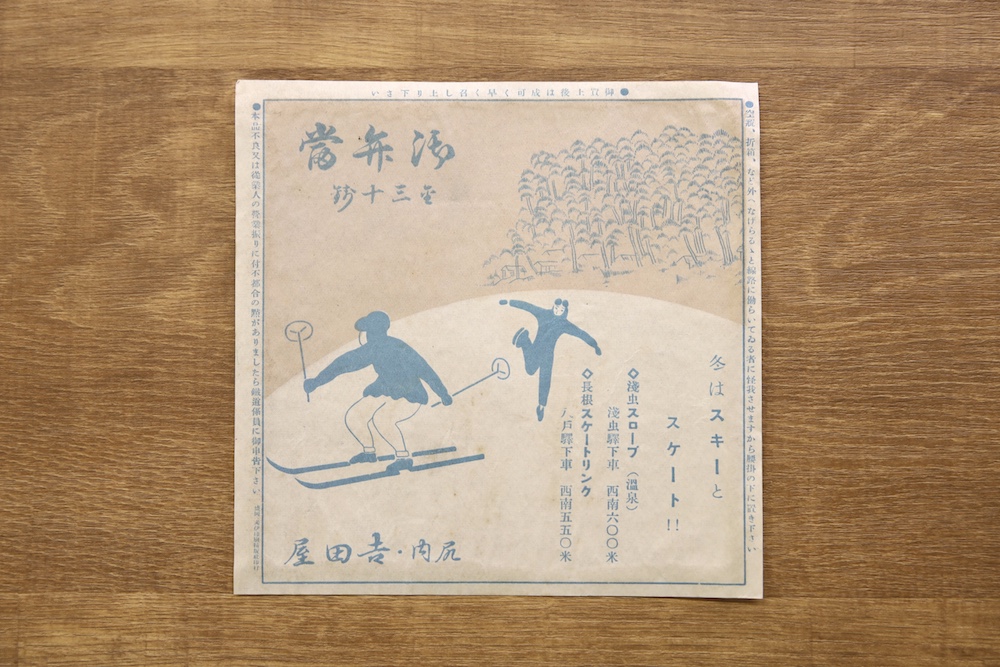 ●御買上後は成可く早く召し上り下さい
●空瓶、折箱、など外へなげらるゝと線路に働らいてゐる者に怪我させますから腰掛の下に置き下さい
御弁當
金三十錢
冬はスキーと
スケート!!
◇淺虫スロープ（溫泉）
淺虫驛下車 西南六〇〇米
◇長根スケートリンク
八戶驛下車 西南五五〇米
尻内・吉田屋
●本品不良又は從業人の營業振りに付不都合の點がありましたら鐵道係員に御申告下さい